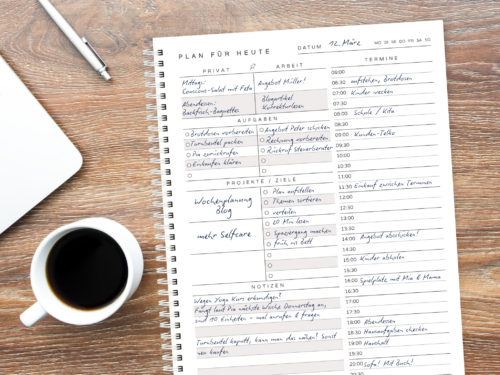 PLAN FÜR HEUTE
DATUM 12. März
MO DI MI DO FR SA SO
PRIVAT
ARBEIT
Mittag:
Couscous-Salat mit Feta
Abendessen:
Backfisch-Baguettes
Angebot Müller!
Blogartikel
Korrekturlesen
AUFGABEN
Brotdosen vorbereiten
Turnbeutel packen
Pia zurückrufen
Einkaufen klären
Angebot Peter schicken
Rechnung vorbereiten
Rückruf Steuerberater
PROJEKTE / ZIELE
Wochenplanung
Blog
Plan aufstellen
Themen sortieren
verteilen
mehr Selfcare
10 Min lesen
Spaziergang machen
früh ins Bett
NOTIZEN
Wegen Yoga Kurs erkundigen?
Fängt laut Pia nächste Woche Donnerstag an,
sind 10 Einheiten - mal anrufen & fragen
Turnbeutel kaputt, kann man das nähen? Sonst
neu kaufen
TERMINE
06:00
06:30 aufstehen, Brotdosen
07:00 Kinder wecken
07:30
08:00 Schule / Kita
08:30
09:00 Kunden-Telko
09:30
10:00
10:30
11:00
11:30 Einkauf zwischen Terminen
12:00
12:30
13:00
13:30
14:00 Angebot abschicken!
14:30
15:00 Kinder abholen
15:30
16:00 Spielplatz mit Mia & Mama
16:30
17:00
17:30
18:00 Abendessen
18:30 Hausaufgaben checken
19:00 Haushalt
19:30
20:00 Sofa! Mit Buch!
20:30